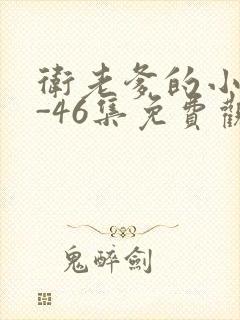 衛老爹的小
-46集免費觀
鬼醉劍